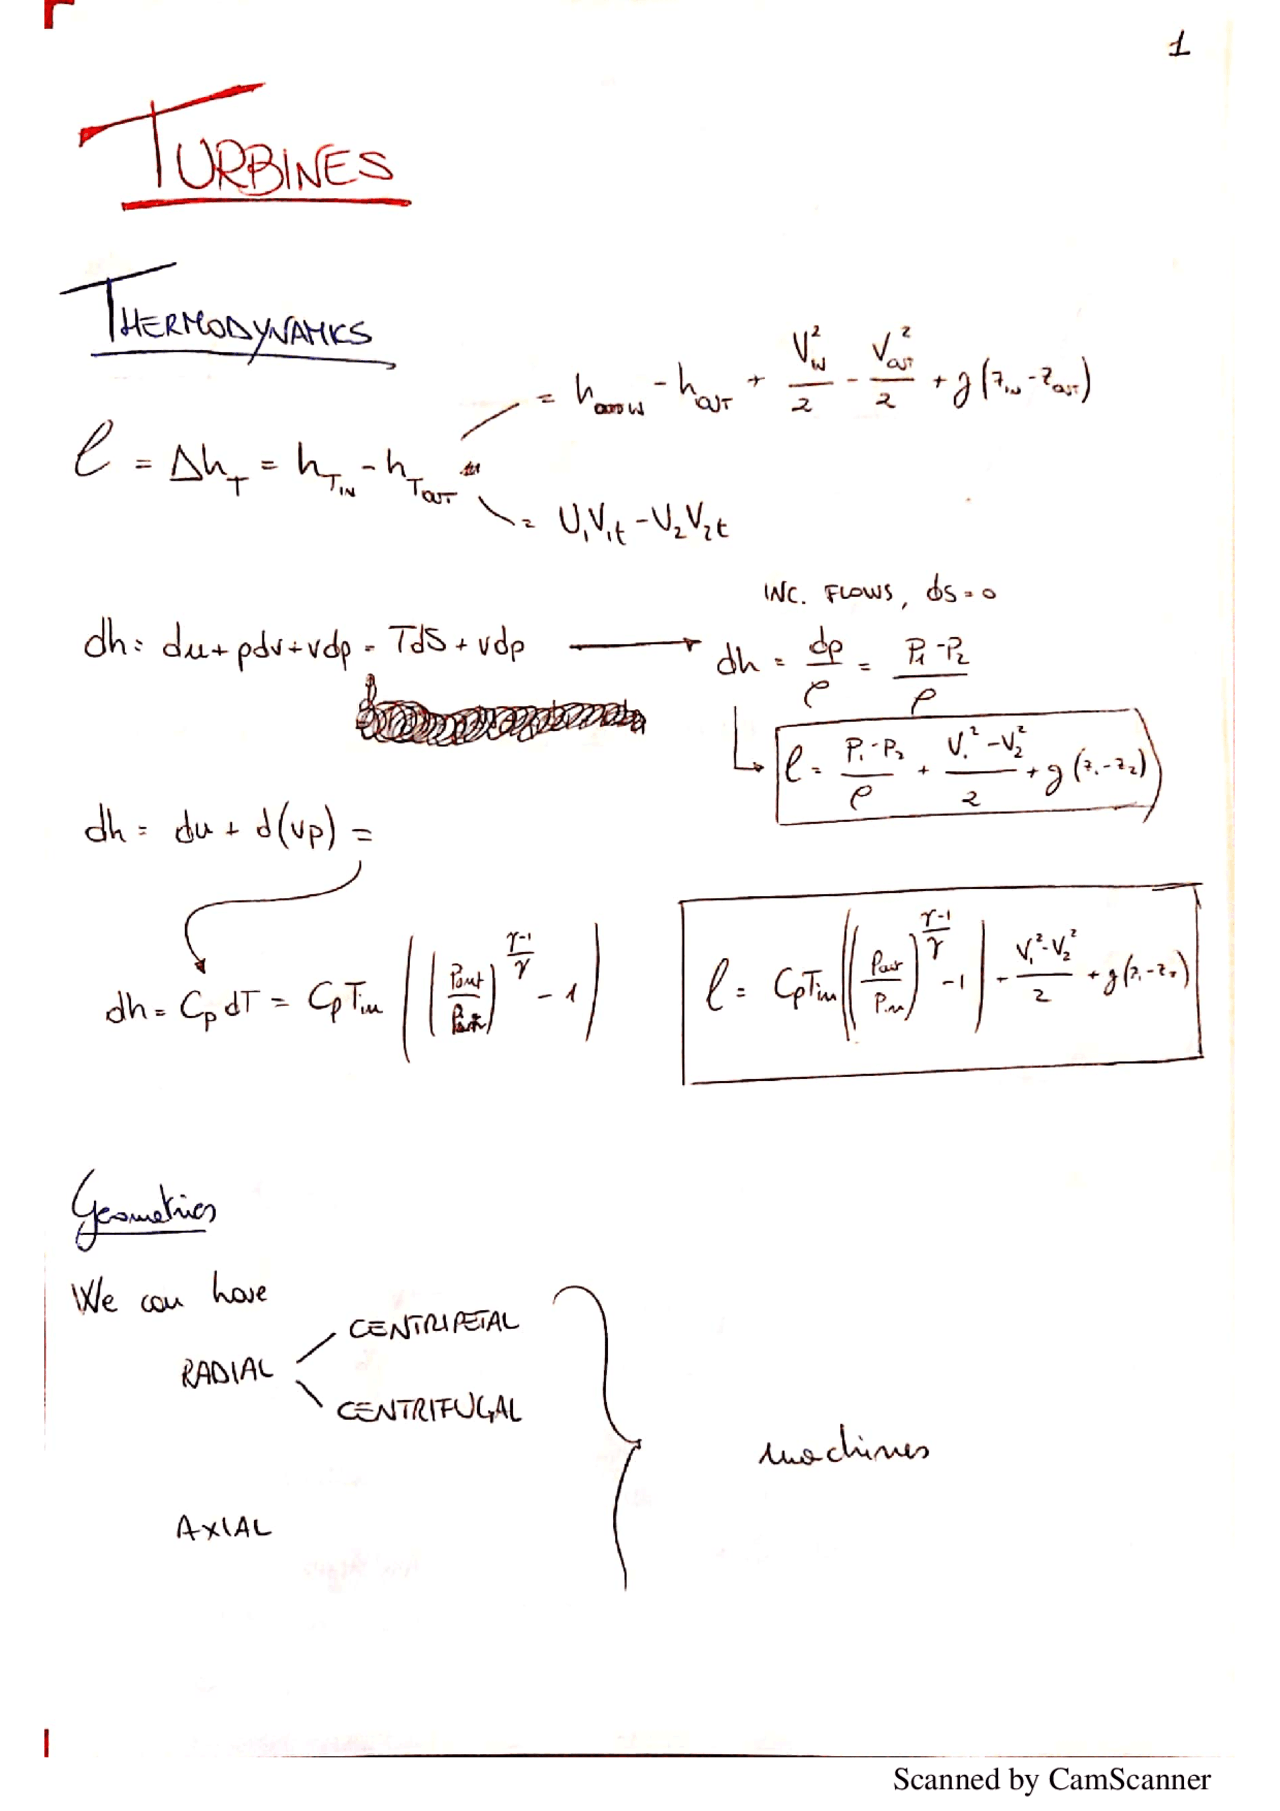 1
TURBINES
THERMODYNAMICS
= h_IN - h_OUT + V_IN²/2 - V_OUT²/2 + g(z_IN - z_OUT)
l = Δh_T = h_T_IN - h_T_OUT
= U₁V₁t - U₂V₂t
INC. FLOWS, ds=0
dh = du + pdv + vdp = Tds + vdp → dh = dp/ρ = P₁-P₂/ρ
l = P₁-P₂/ρ + V₁²-V₂²/2 + g(z₁-z₂)
dh = du + d(vp) =
dh = Cp dT = CpTin ((Pout/Pin)^(γ-1/γ) - 1)
l = CpTin ((Pout/Pin)^(γ-1/γ) - 1) - V₁²-V₂²/2 + g(z₁-z₂)
Geometries
We can have
RADIAL
CENTRIPETAL
CENTRIFUGAL
AXIAL
machines
Scanned by CamScanner